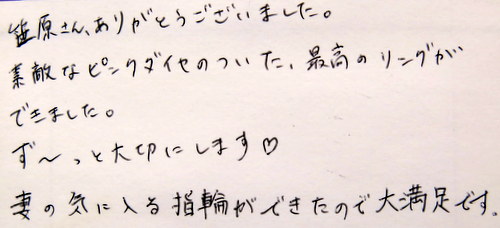 笹原さん、ありがとうございました。
素敵なピンクダイヤのついた、最高のリングが
できました。
ず〜っと大切にします♡
妻の気に入る指輪ができたので大満足です。